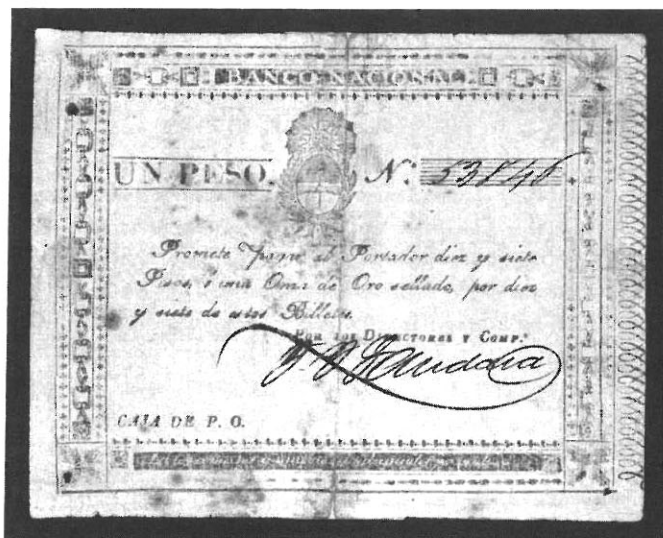 BANCO NACIONAL
UN PESO. N.º 53848
Promete pagar al Portador diez y siete
Pesos, ó una Onza de Oro sellado, por diez
y siete de estos Billetes.
POR LOS DIRECTORES Y COMP.ª
CAJA DE P. O.